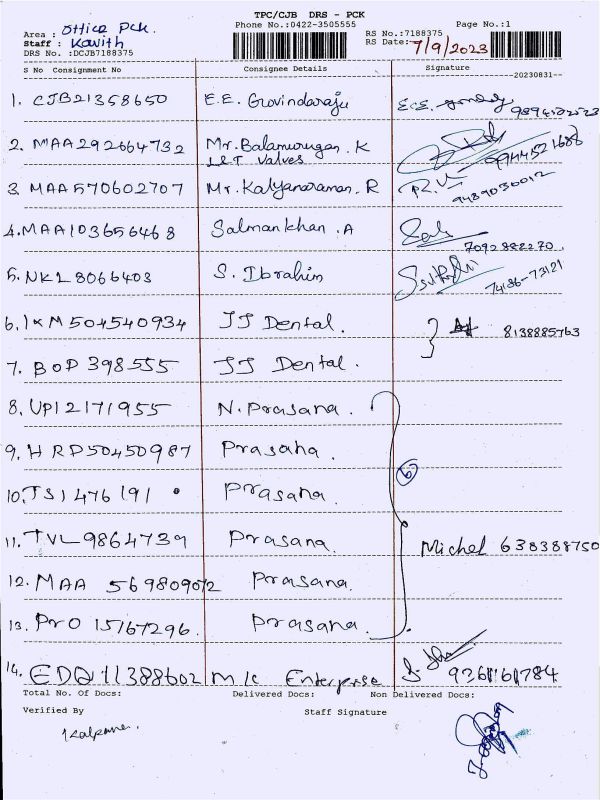 TPC/CJB DRS - PCK
Phone No.:0422-3505555 Page No.:1
Area : Office Pck.
Staff : Kavith
DRS No. :DCJB7188375
RS No.:7188375
RS Date: 7/9/2023
S No Consignment No Consignee Details Signature
--20230831--
1. CJB21358650 E.E. Govindaraju
2. MAA292664732 Mr. Balamurugan. K
L&T Valves 9944521688
3. MAA570602707 Mr. Kalyanaraman. R
9489030012
4. MAA103656468 Salmankhan. A
7092882270.
5. NKL8066403 S. Ibrahim
74186-73121
6. IXM504540934 JJ Dental. 8138885763
7. BOP 398555 JJ Dental.
8. UPI2171955 N. Prasana.
9. HRP50450987 Prasana.
6
10. TSI476191 Prasana.
11. TVL9864739 Prasana. Michel 638388750
12. MAA 569809012 Prasana.
13. PRO 15167296. Prasana.
14. EDQ11388602 M/c Enterprise 9361161784
Total No. Of Docs: Delivered Docs: Non Delivered Docs:
Verified By Staff Signature
Kalpana.